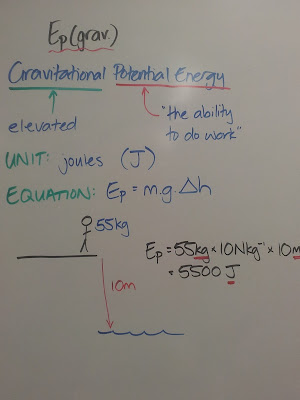 Ep(grav.)
Gravitational Potential Energy
elevated
"the ability
to do work"
UNIT: joules (J)
EQUATION: Ep = m.g.Δh
55kg
Ep = 55kg × 10Nkg⁻¹ × 10m
= 5500 J
10m